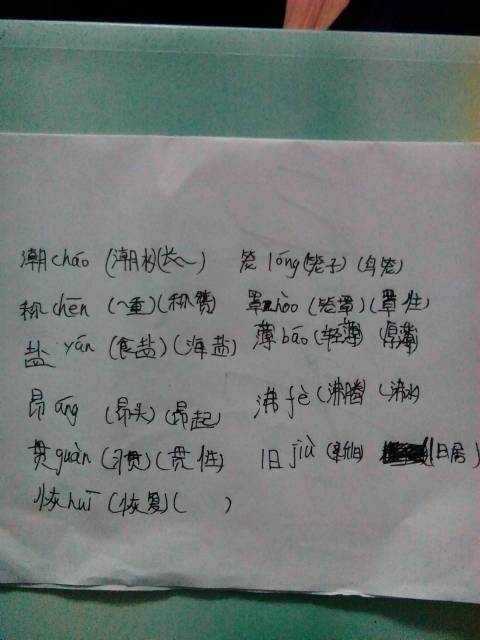 潮cháo (潮水)(长～) 笼lóng(笼子)(鸟笼)
称chēn (～重)(称赞) 罩zhào(笼罩)(罩住)
盐yán (食盐)(海盐) 薄báo(轻薄)(厚薄)
昂áng (昂头)(昂起) 沸fè(沸腾)(沸水)
贯guàn (习贯)(贯性) 旧jiù(新旧) (旧居)
恢huī (恢复)( )